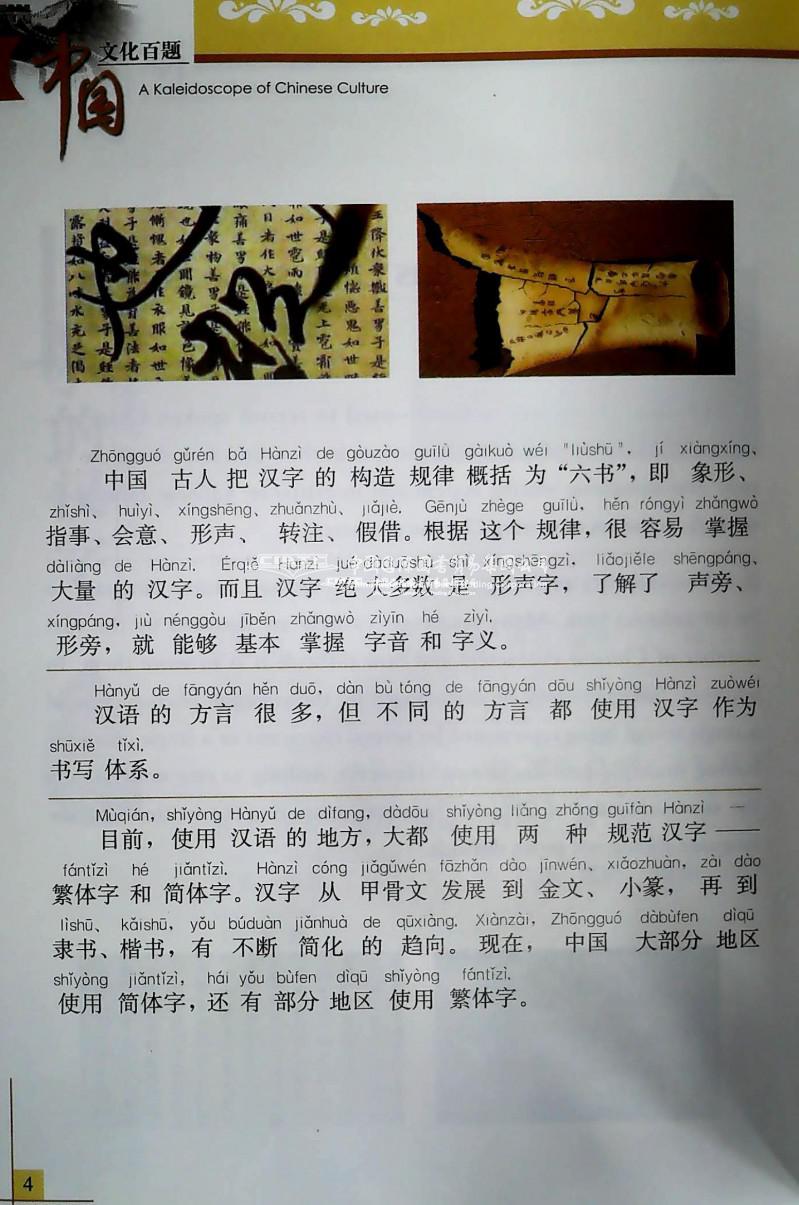 中国
文化百题
A Kaleidoscope of Chinese Culture
Zhōngguó gǔrén bǎ Hànzì de gòuzào guīlǜ gàikuò wéi "liùshū", jí xiàngxíng、
中国 古人 把 汉字 的 构造 规律 概括 为 “六书”，即 象形、
zhǐshì、 huìyì、 xíngshēng、 zhuǎnzhù、 jiǎjiè. Gēnjù zhège guīlǜ, hěn róngyì zhǎngwò
指事、会意、 形声、 转注、 假借。根据 这个 规律，很 容易 掌握
dàliàng de Hànzì. Érqiě Hànzì jué dàduōshù shì xíngshēngzì, liǎojiěle shēngpáng、
大量 的 汉字。而且 汉字 绝 大多数 是 形声字，了解了 声旁、
xíngpáng, jiù nénggòu jīběn zhǎngwò zìyīn hé zìyì.
形旁，就 能够 基本 掌握 字音 和 字义。
Hànyǔ de fāngyán hěn duō, dàn bù tóng de fāngyán dōu shǐyòng Hànzì zuòwéi
汉语 的 方言 很 多，但 不 同 的 方言 都 使用 汉字 作为
shūxiě tǐxì.
书写 体系。
Mùqián, shǐyòng Hànyǔ de dìfang, dàdōu shǐyòng liǎng zhǒng guīfàn Hànzì —
目前，使用 汉语 的 地方，大都 使用 两 种 规范 汉字 ——
fántǐzì hé jiǎntǐzì. Hànzì cóng jiǎgǔwén fāzhǎn dào jīnwén、 xiǎozhuàn, zài dào
繁体字 和 简体字。汉字 从 甲骨文 发展 到 金文、 小篆， 再 到
lìshū、 kǎishū, yǒu búduàn jiǎnhuà de qūxiàng. Xiànzài, Zhōngguó dàbùfen dìqū
隶书、楷书，有 不断 简化 的 趋向。现在， 中国 大部分 地区
shǐyòng jiǎntǐzì, hái yǒu bùfen dìqū shǐyòng fántǐzì.
使用 简体字，还 有 部分 地区 使用 繁体字。
4